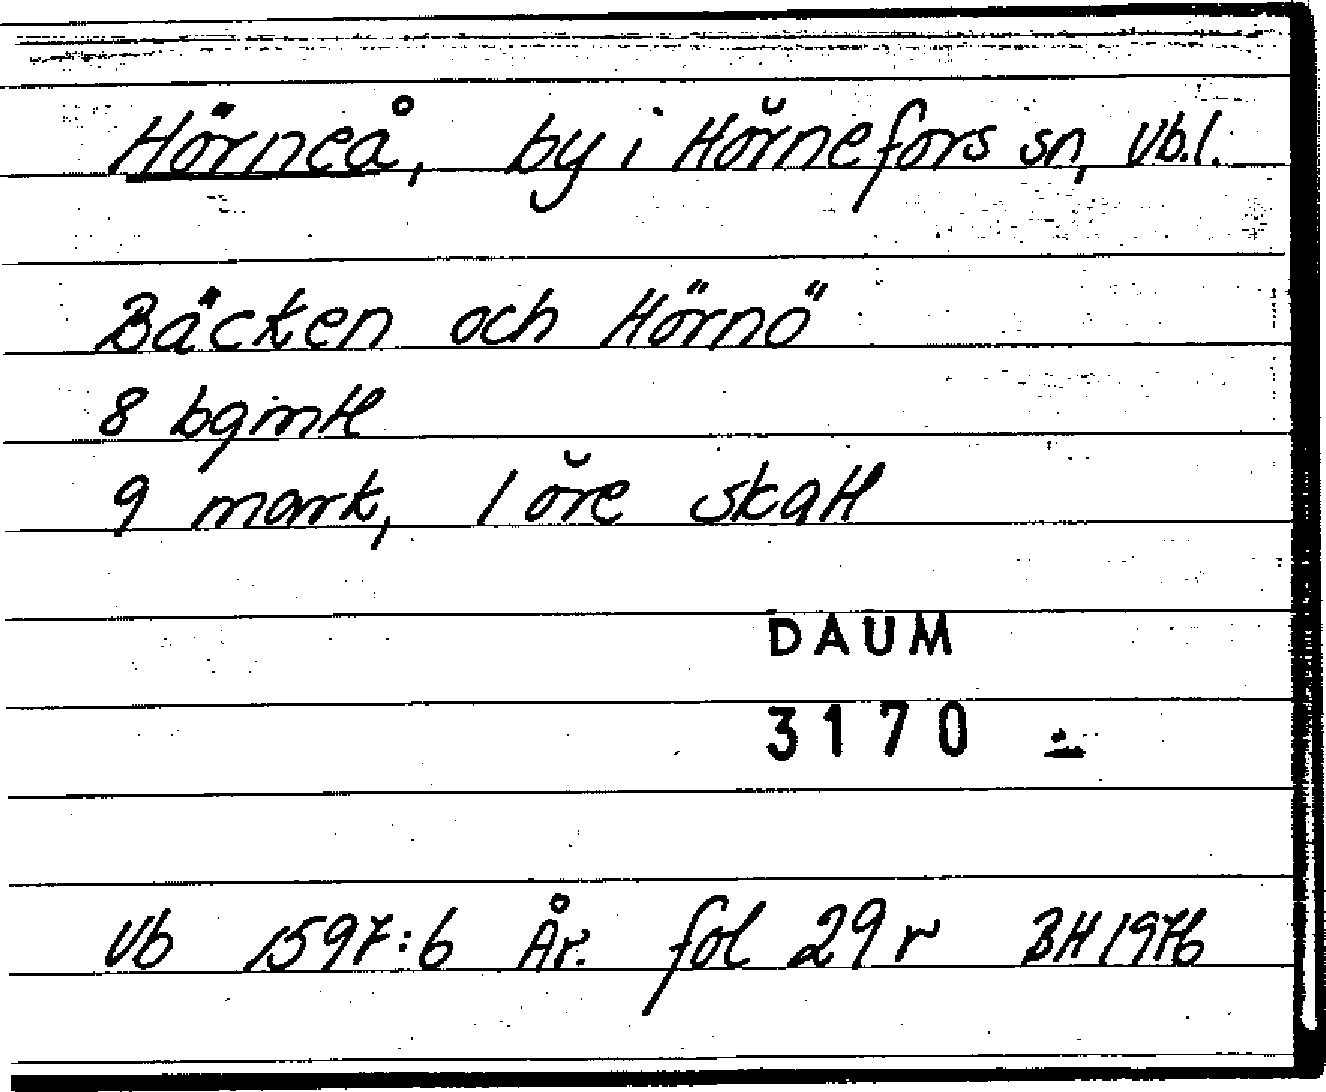 Hörneå, by i Hörnefors sn, Vb.l.
Bäcken och Hörnö
8 bgmtl
9 mark, 1 öre skatt
DAUM
3170
Vb 1597:6 År. fol 29 r BH 1976